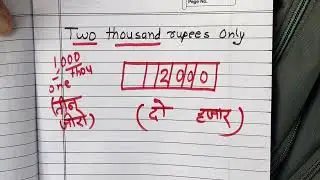 Page No.
Two thousand rupees only
1,000
Thou
one
2000
(तीन
जीरो)
(दो हजार)